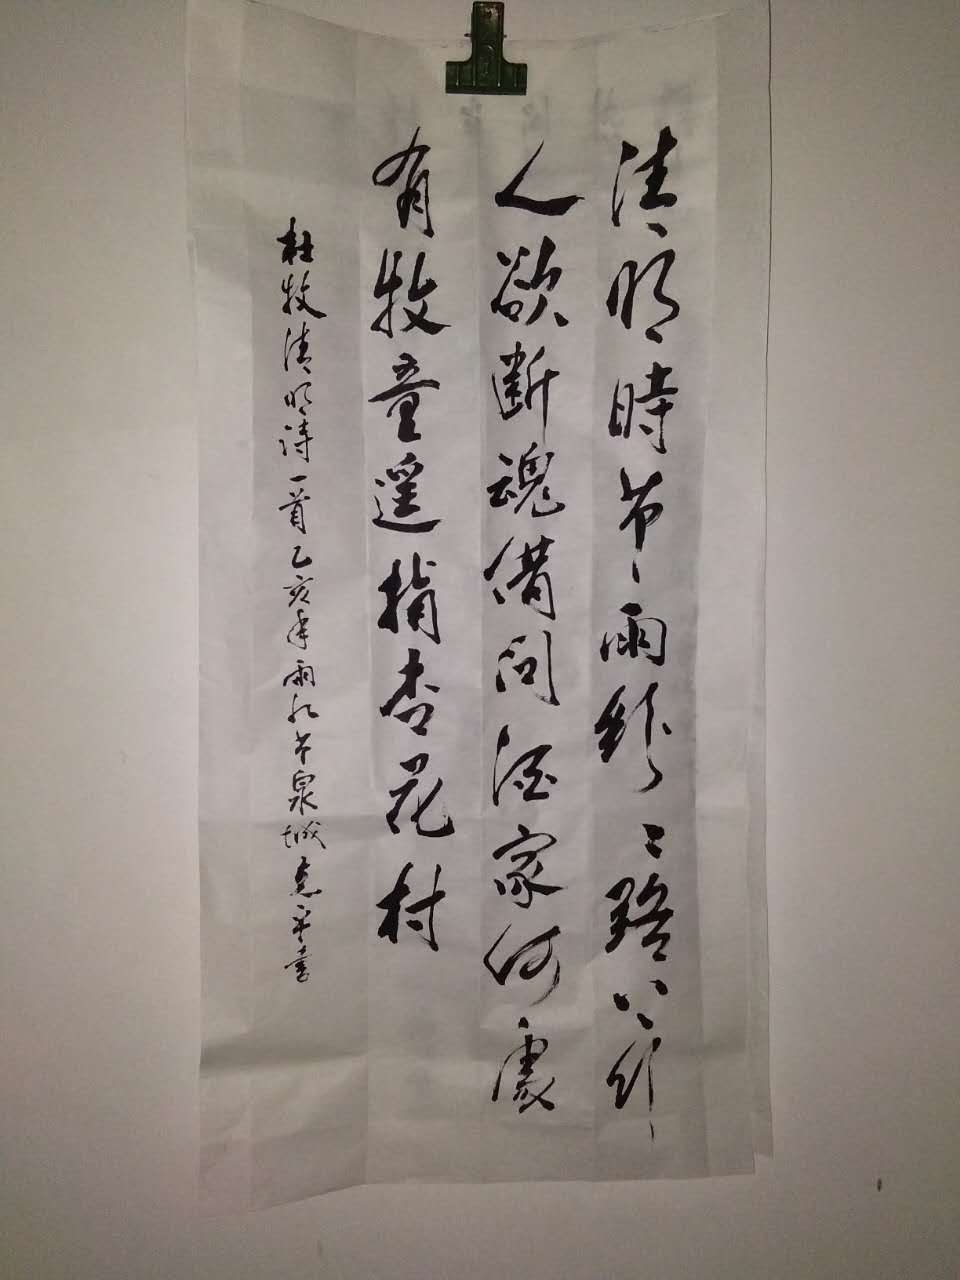 清明時节雨紛〻路上行
人欲断魂借问酒家何處
有牧童遥指杏花村
杜牧清明诗一首乙亥年雨水节泉城志平書